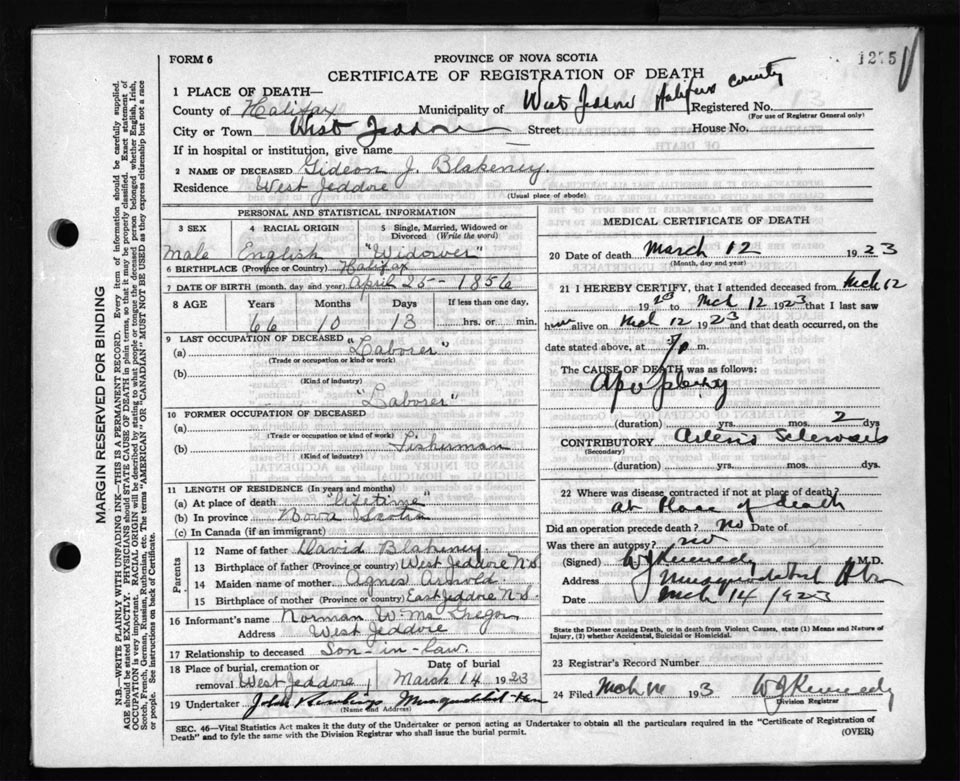 FORM 6
PROVINCE OF NOVA SCOTIA
1275
CERTIFICATE OF REGISTRATION OF DEATH
1 PLACE OF DEATH—
County of Halifax Municipality of West Jeddore Halifax County Registered No.
(For use of Registrar General only)
City or Town West Jeddore Street House No.
If in hospital or institution, give name
2 NAME OF DECEASED Gideon J. Blakeney.
Residence West Jeddore
(Usual place of abode)
PERSONAL AND STATISTICAL INFORMATION
3 SEX 4 RACIAL ORIGIN 5 Single, Married, Widowed or Divorced (Write the word)
Male English "Widower"
6 BIRTHPLACE (Province or Country) Halifax
7 DATE OF BIRTH (month, day and year) April 25— 1856
8 AGE Years Months Days If less than one day,
66 10 13 hrs. or min.
9 LAST OCCUPATION OF DECEASED
(a) "Laborer"
(Trade or occupation or kind or work)
(b)
(Kind of industry)
"Laborer"
10 FORMER OCCUPATION OF DECEASED
(a)
(Trade or occupation or kind of work)
(b) Fisherman
(Kind of industry)
11 LENGTH OF RESIDENCE (In years and months)
(a) At place of death "lifetime"
(b) In province Nova Scotia
(c) In Canada (if an immigrant)
Parents
12 Name of father David Blakeney
13 Birthplace of father (Province or country) West Jeddore N.S.
14 Maiden name of mother Agnes Arnold
15 Birthplace of mother (Province or country) East Jeddore N.S.
16 Informant's name Norman W. McGregor
Address West Jeddore
17 Relationship to deceased Son-in-law
18 Place of burial, cremation or Date of burial
removal West Jeddore March 14 1923
19 Undertaker John
(Name and Address)
MEDICAL CERTIFICATE OF DEATH
20 Date of death March 12 1923
(Month, day and year)
21 I HEREBY CERTIFY, that I attended deceased from Mch 12
1923 to Mch 12 1923 that I last saw
him alive on Mch 12 1923 and that death occurred, on the
date stated above, at m.
The CAUSE OF DEATH was as follows:
Apoplexy
(duration) yrs. mos. 2 dys
CONTRIBUTORY Arterio Sclerosis
(Secondary)
(duration) yrs. mos. dys.
22 Where was disease contracted if not at place of death?
at Place of death
Did an operation precede death? no Date of
Was there an autopsy? no
(Signed) WJ Kennedy M.D.
Address Musquodoboit Hbr
Date Mch 14 / 1923
State the Disease causing Death, or in death from Violent Causes, state (1) Means and Nature of
Injury, (2) whether Accidental, Suicidal or Homicidal.
23 Registrar's Record Number
24 Filed Mch 193 WJ Kennedy
Division Registrar
SEC. 46—Vital Statistics Act makes it the duty of the Undertaker or person acting as Undertaker to obtain all the particulars required in the "Certificate of Registration of
Death" and to fyle the same with the Division Registrar who shall issue the burial permit.
(OVER)
MARGIN RESERVED FOR BINDING
N.B.—WRITE PLAINLY WITH UNFADING INK—THIS IS A PERMANENT RECORD. Every item of information should be carefully supplied.
AGE should be stated EXACTLY. PHYSICIANS should STATE CAUSE OF DEATH in plain terms, so that it may be properly classified. Exact statement of
OCCUPATION is very important. RACIAL ORIGIN will be described by stating to what people or tongue the deceased person belonged whether English, Irish,
Scotch, French, German, Russian, Ruthenian, etc. The terms "AMERICAN" OR "CANADIAN" MUST NOT BE USED as they express citizenship but not a race
or people. See instructions on back of Certificate.